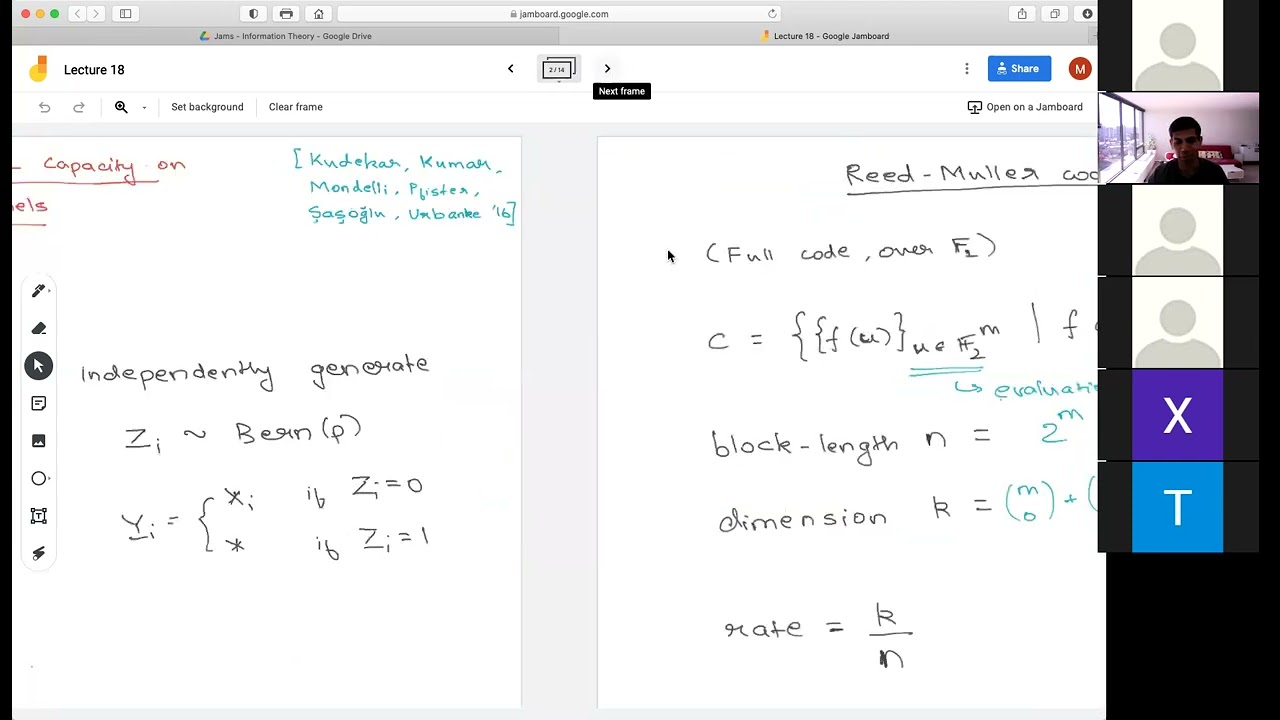 jamboard.google.com
Jams - Information Theory - Google Drive
Lecture 18 - Google Jamboard
Lecture 18
2 / 14
Next frame
Share
M
Set background
Clear frame
Open on a Jamboard
Capacity on
[Kudekar, Kumar,
Mondelli, Pfister,
Şaşoğlu, Urbanke '16]
independently generate
Z_i ~ Bern(p)
Y_i = { X_i if Z_i = 0
* if Z_i = 1
Reed-Muller
(Full code, over F_2)
C = { {f(u)}_{u ∈ F_2^m} | f
↳
block-length n = 2^m
dimension k = (m 0) + (
rate = k/n
X
T